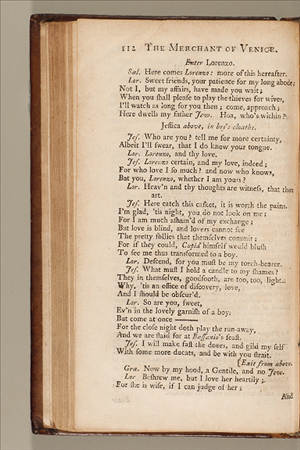 112 THE MERCHANT OF VENICE.
Enter Lorenzo.
Sal. Here comes Lorenzo: more of this hereafter.
Lor. Sweet friends, your patience for my long abode;
Not I, but my affairs, have made you wait;
When you shall please to play the thieves for wives,
I'll watch as long for you then; come, approach;
Here dwells my father Jew. Hoa, who's within?
Jessica above, in boy's cloaths.
Jes. Who are you? tell me for more certainty,
Albeit I'll swear, that I do know your tongue.
Lor. Lorenzo, and thy love.
Jes. Lorenzo certain, and my love, indeed;
For who love I so much? and now who knows,
But you, Lorenzo, whether I am yours?
Lor. Heav'n and thy thoughts are witness, that thou
art.
Jes. Here catch this casket, it is worth the pains.
I'm glad, 'tis night, you do not look on me;
For I am much asham'd of my exchange;
But love is blind, and lovers cannot see
The pretty follies that themselves commit;
For if they could, Cupid himself would blush
To see me thus transformed to a boy.
Lor. Descend, for you must be my torch-bearer.
Jes. What must I hold a candle to my shames?
They in themselves, goodsooth, are too, too, light.
Why, 'tis an office of discovery, love,
And I should be obscur'd.
Lor. So are you, sweet,
Ev'n in the lovely garnish of a boy;
But come at once
For the close night doth play the run-away,
And we are staid for at Bassanio's feast.
Jes. I will make fast the doors, and gild my self
With some more ducats, and be with you strait.
[Exit from above.
Gra. Now by my hood, a Gentile, and no Jew.
Lor. Beshrew me, but I love her heartily;
For she is wise, if I can judge of her;